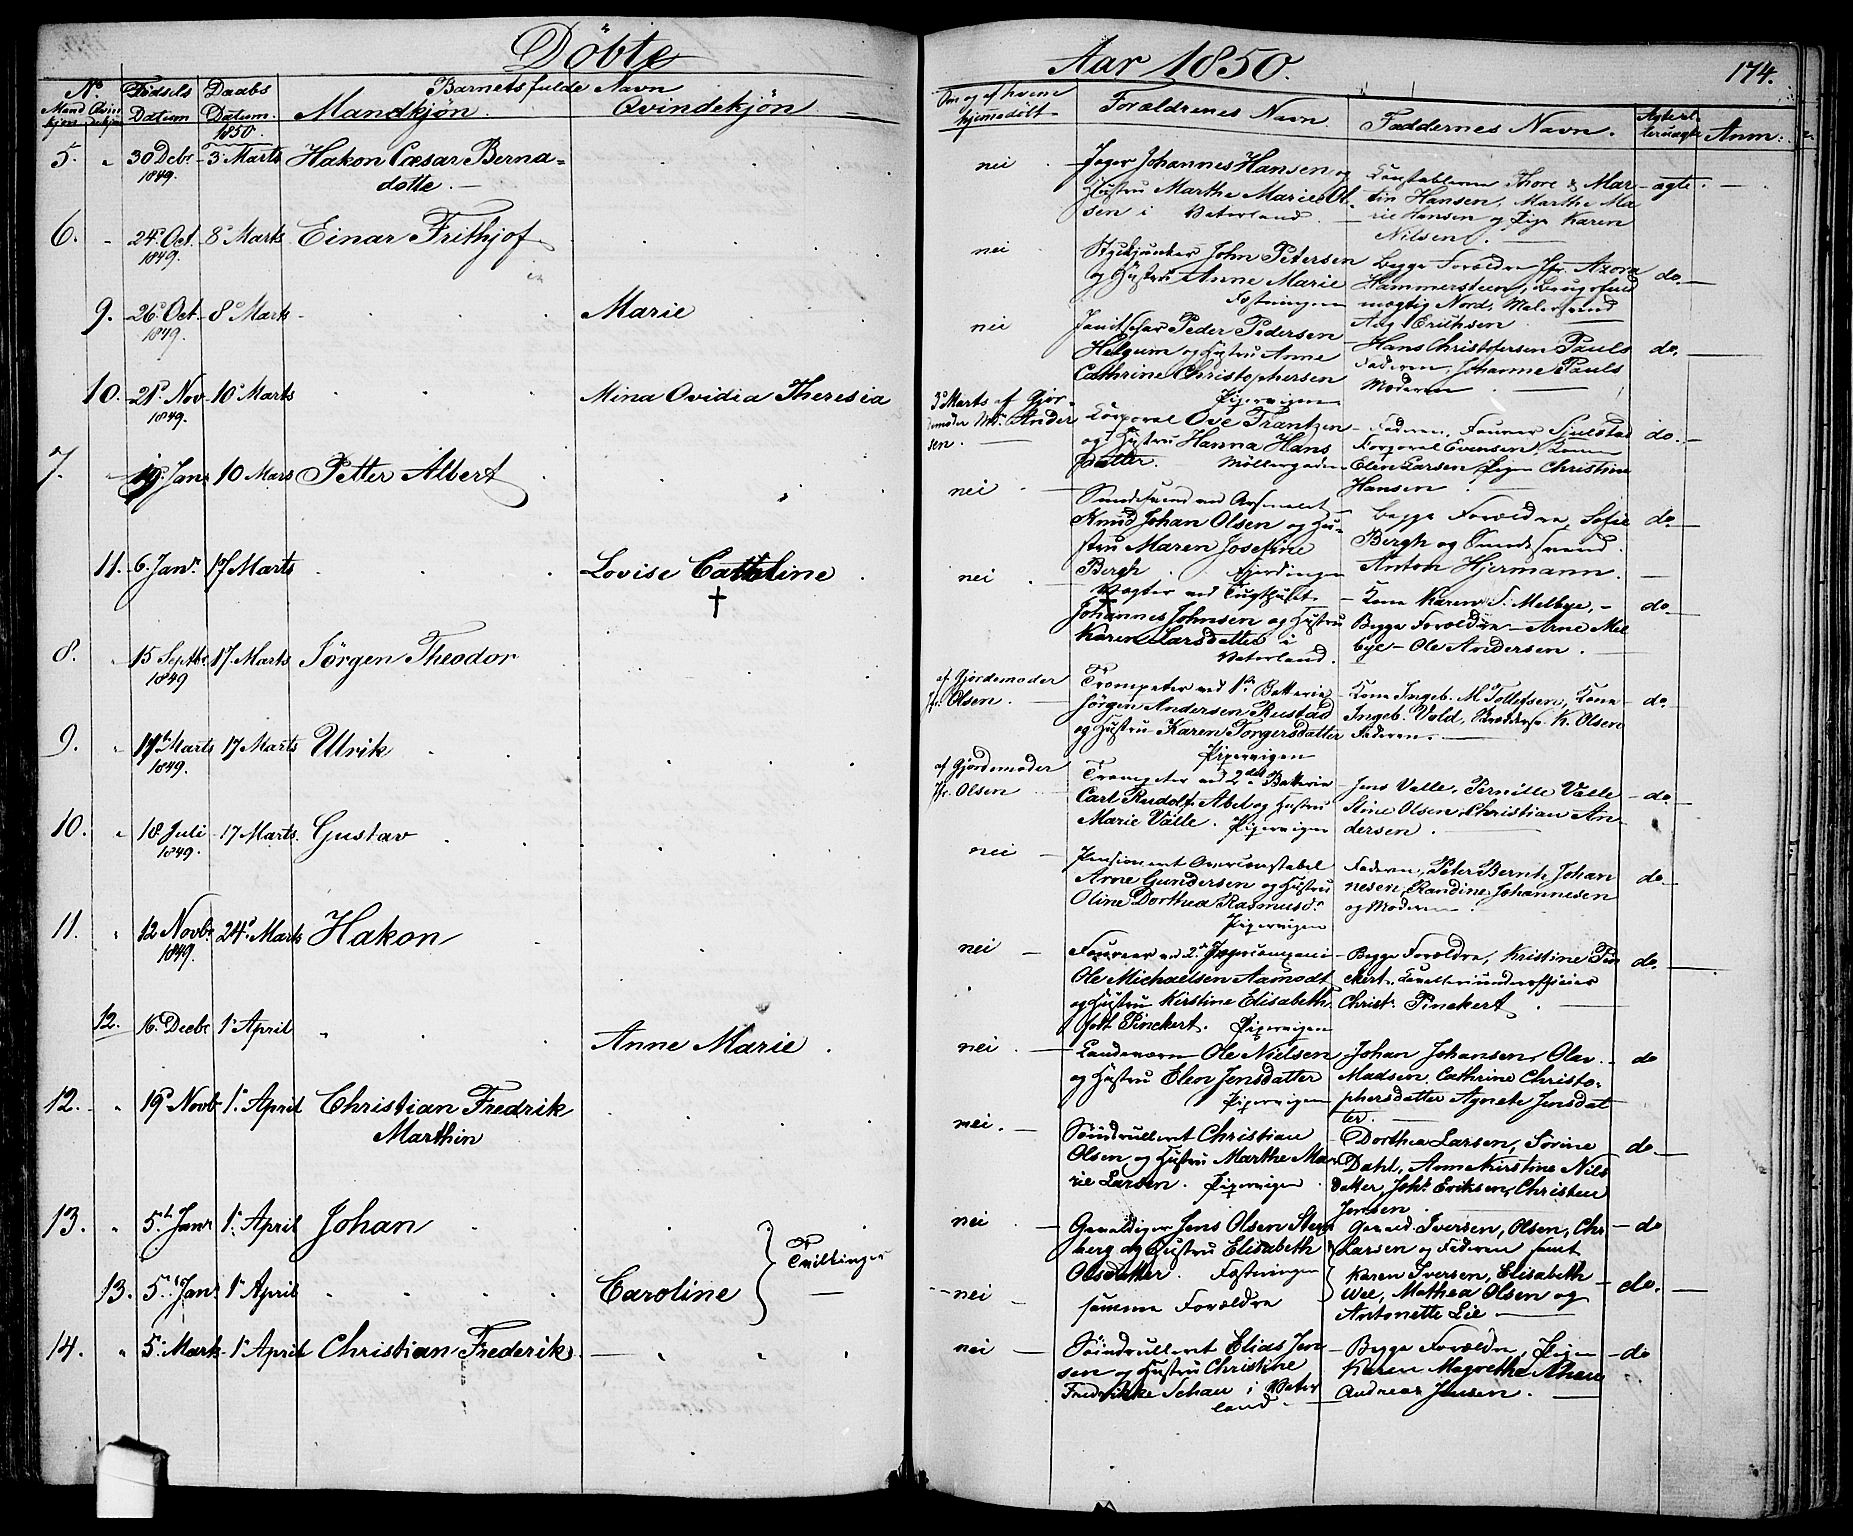 Döbte
Aar 1850.
174.
No.
Mandkjön
Qvindekjön
Födsels Datum
Daabs Datum.
Barnets fulde Navn
Mandkjön.
Qvindekjön
Om og af hvem hjemmedöbt.
Forældrenes Navn.
Faddernes Navn.
Ægte el. uægte
Anm:
1850
5. 30 Decbr 1849. 3 Marts Hakon Cæsar Berna=
dotte.
nei
Jæger Johannes Hansen og
Hustru Marthe Marie Ol-
sen i Vaterland.
Constablerne Thore & Mar-
tin Hansen, Marthe Ma-
rie Hansen og Pige Karen
Nilsen.
ægte.
6. 24 Oct. 1849. 8 Marts Einar Frithjof
nei
Stykjunker John Petersen
og Hustru Anne Marie
Fæstningen
Begge Forældre, Jfr. Azora
Hammersteen,
mægtig Nord, Malersvend
Aug Erichsen
do.
9. 26 Oct. 1849. 8 Marts Marie
nei
Peder Pedersen
Helgum og Hustru Anne
Cathrine Christophersen
Pipervigen
Hans Christofersen Pauls
Faderen, Johanne Pauls
Moderen
do.
10. 21 Nov 1849. 10 Marts Mina Ovidia Theresia
3 Marts af Gjor-
demoder Md. Ander
sen.
Corporal Ove Frantzen
og Hustru Hanna Hans
datter. Möllergaden
Faderen, Fourer Sjulstad
Corporal Evensen, Konen
Elen Larsen, Pigen Christine
Hansen
do.
7. 19 Janr 10 Mars Petter Albert
nei
Smedesvend ved Arsenalet
Knud Johan Olsen og Hu-
stru Maren Josefine
Bergh. Fjerdingen
Begge Forældre, Sofie
Bergh og Smedesvend
Anton Hjermann.
do.
11. 6 Janr. 17 Marts Lovise Cattoline
†
nei
Vægter ved Tugthuset
Johannes Johnsen og Hustru
Karen Larsdatter i
Vaterland.
Kone Karen S. Melbye,
Begge Forældre - Arne Mel
bye - Ole Andersen.
do.
8. 15 Septbr 1849 17 Marts Jörgen Theodor
af Gjordemoder
Jfr. Olsen.
Trompeter ved 1ste Batterie
Jörgen Andersen Rustad
og Hustru Karen Torgersdatter
Pipervigen
Kone Ingeb. M Tollefsen, Kone
Ingeb. Vold, K. Olsen
Faderen.
do.
9. 11 Marts 1849. 17 Marts Ulrik
af Gjordemoder
Jfr. Olsen
Trompeter ved 2det Batterie
Carl Rudolf Abel og Hustru
Marie Valle. Pipervigen
Jens Valle, Pernille Valle
Stine Olsen, Christian An-
dersen.
do.
10. 18 Juli 1849. 17 Marts. Gustav
nei
Pensioneret Overconstabel
Arne Gundersen og Hustru
Oline Dorthea Rasmusdr
Pipervigen
Faderen, Peter Bernth Johan
nesen, Randine Johannesen
og Moderen
do.
11. 12 Novbr. 1849. 24 Marts Hakon
nei
Foureer ved 2. Jægercompani
Ole Michaelsen Aamodt
og Hustru Kirstine Elisabeth
födt Pinckert. Pipervigen
Begge Forældre, Kristine Pin
ckert, Cavalleriunderofficeer
Christ. Pinckert.
do.
12. 16. Decbr 1 April Anne Marie
nei
Landeværn Ole Nielsen
og Hustru Elen Jensdatter
Pipervigen
Johan Johansen, Olav
Madsen, Cathrine Christo-
phersdatter Agnete Jensdat
ter.
do
12. 19 Novb 1 April Christian Fredrik
Marthin
nei.
Söindrulleret Christian
Olsen og Hustru Marthe Ma-
rie Larsen. Pipervigen
Dorthea Larsen, Sörine
Dahl, Ann Kirstine Nils
datter, Joh: Eriksen, Christen
Jensen.
do
13. 5. Janr 1 April Johan
nei
Gevaldiger Jens Olsen Sten
berg og Hustru Elisabeth
Olsdatter. Fæstningen
Iversen, Olsen, Chr
Larsen og Faderen samt
do
13. 5. Janr 1 April Caroline
Tvillinger
nei
samme Forældre
Karen Iversen, Elisabeth
Wee, Mathea Olsen og
Antonette Lie
do.
14. 5. Marts 1 April Christian Frederik
nei
Söindrulleret Elias Jen
sen og Hustru Christine
Fredrikke Schau i Vater
land.
Begge Forældre, Pigen
Karen Magrethe
Andreas Jensen.
do